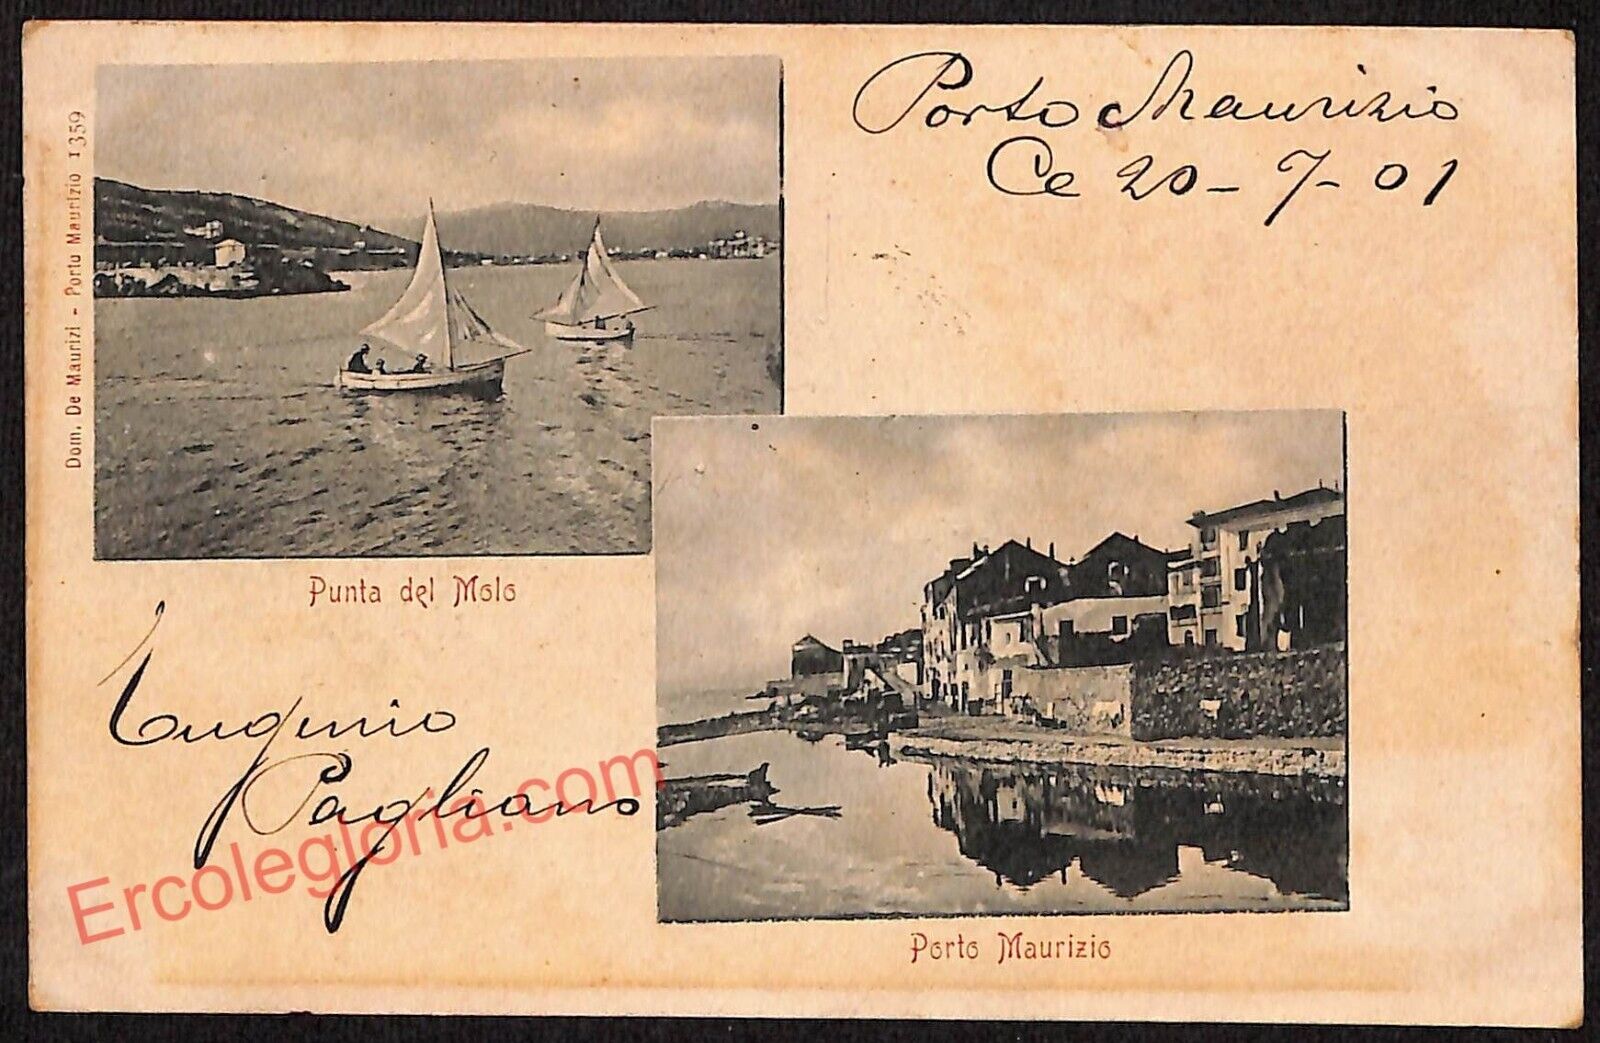 Porto Maurizio
Ce 20-7-01
Dom. De Maurizi - Porto Maurizio 1359
Punta del Molo
Eugenio
Pagliano
Ercolegloria.com
Porto Maurizio